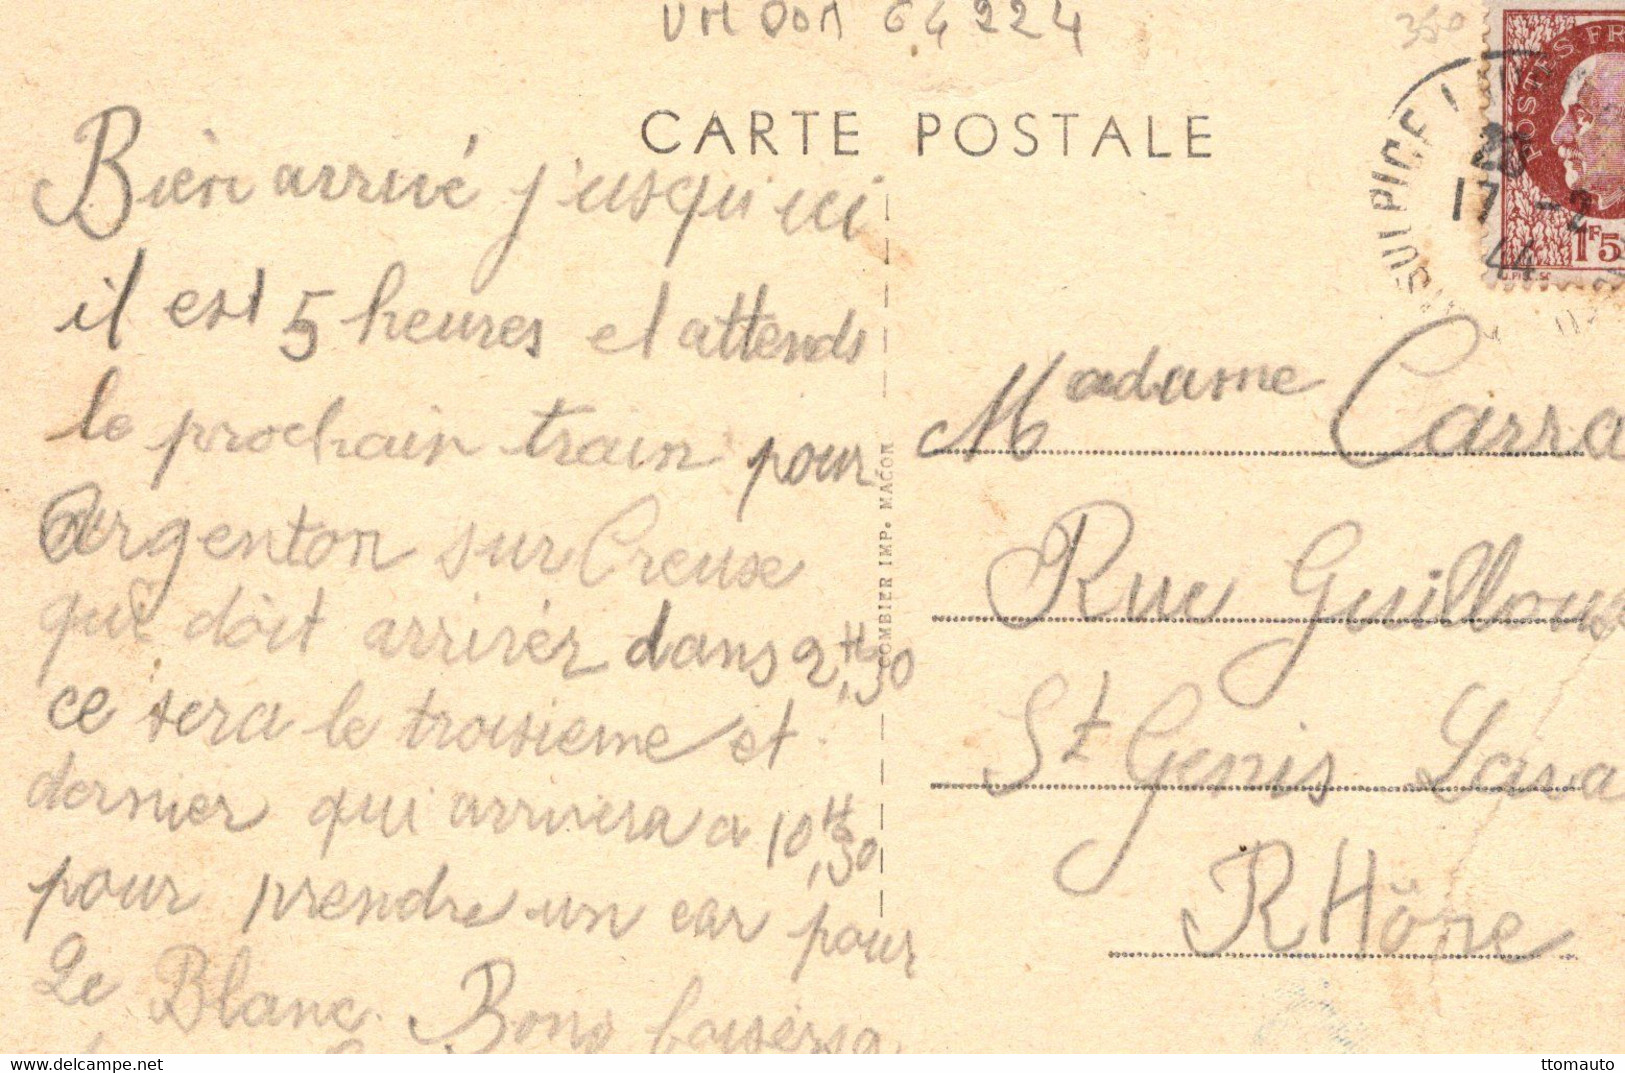 64224
350
CARTE POSTALE
POSTES FR
1F5
SULPICE
17 -2
44
Bien arrivé jusqu'ici
il est 5 heures et attends
le prochain train pour
Argenton sur Creuse
qui doit arriver dans 2H,30
ce sera le troisieme et
dernier qui arrivera a 10H,30
pour prendre un car pour
Le Blanc. Bons baisers a
COMBIER IMP. MACON
Madame Carra
Rue Guilloux
St Genis Lava
RHône
delcampe.net
ttomauto